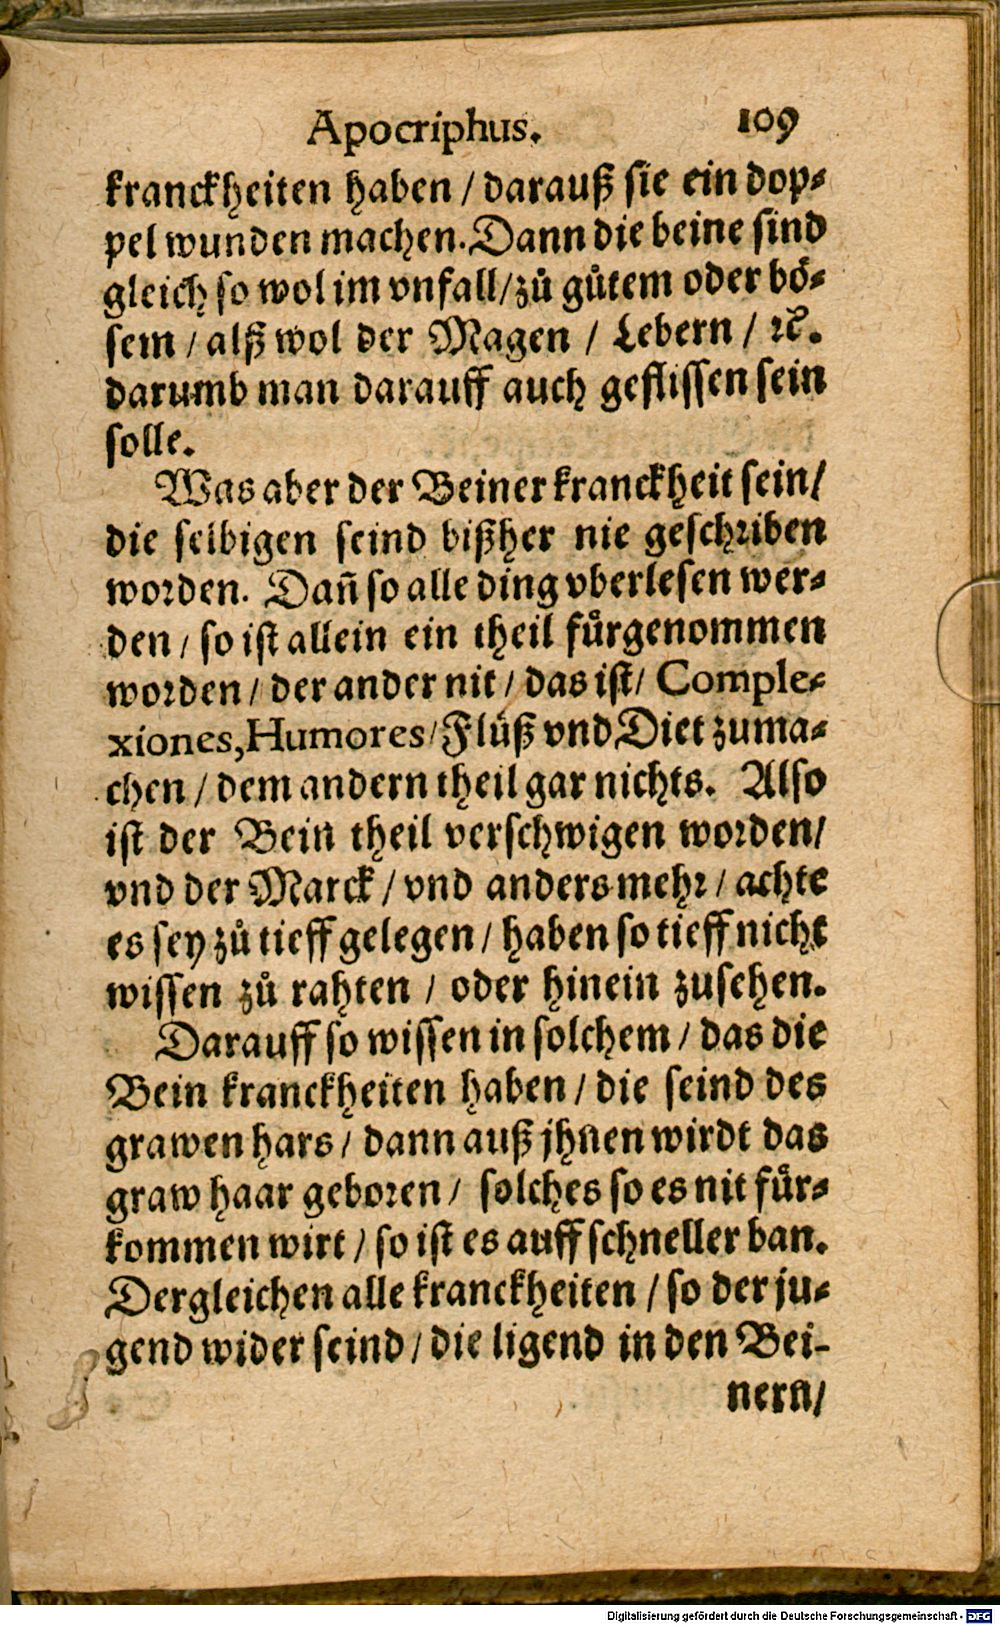 Apocriphus. 109
kranckheiten haben / darauß sie ein dop⸗
pel wunden machen. Dann die beine sind
gleich so wol im vnfall / zů gůtem oder bö⸗
sem / alß wol der Magen / Lebern / ꝛc.
darumb man darauff auch geflissen sein
solle.
Was aber der Beiner kranckheit sein /
die selbigen seind bißher nie geschriben
worden. Dañ so alle ding vberlesen wer⸗
den / so ist allein ein theil fürgenommen
worden / der ander nit / das ist / Comple⸗
xiones, Humores / Flüß vnd Diet zuma⸗
chen / dem andern theil gar nichts. Also
ist der Bein theil verschwigen worden /
vnd der Marck / vnd anders mehr / achte
es sey zů tieff gelegen / haben so tieff nicht
wissen zů rahten / oder hinein zusehen.
Darauff so wissen in solchem / das die
Bein kranckheiten haben / die seind des
grawen hars / dann auß jhnen wirdt das
graw haar geboren / solches so es nit für⸗
kommen wirt / so ist es auff schneller ban.
Dergleichen alle kranckheiten / so der ju⸗
gend wider seind / die ligend in den Bei-
nern /
Digitalisierung gefördert durch die Deutsche Forschungsgemeinschaft - DFG